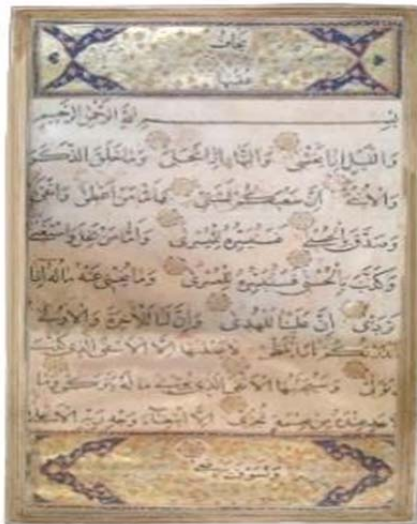 بسم الله الرحمن الرحيم
والليل اذا يغشى والنهار اذا تجلى وما خلق الذكر
والانثى ان سعيكم لشتى فاما من اعطى واتقى
وصدق بالحسنى فسنيسره لليسرى واما من بخل واستغنى
وكذب بالحسنى فسنيسره للعسرى وما يغني عنه ماله اذا
تردى ان علينا للهدى وان لنا للآخرة والاولى
فانذرتكم نارا تلظى لا يصلها الا الاشقى الذي كذب
وتولى وسيجنبها الاتقى الذي يؤتي ماله يتزكى وما
لاحد عنده من نعمة تجزى الا ابتغاء وجه ربه الاعلى
ولسوف يرضى